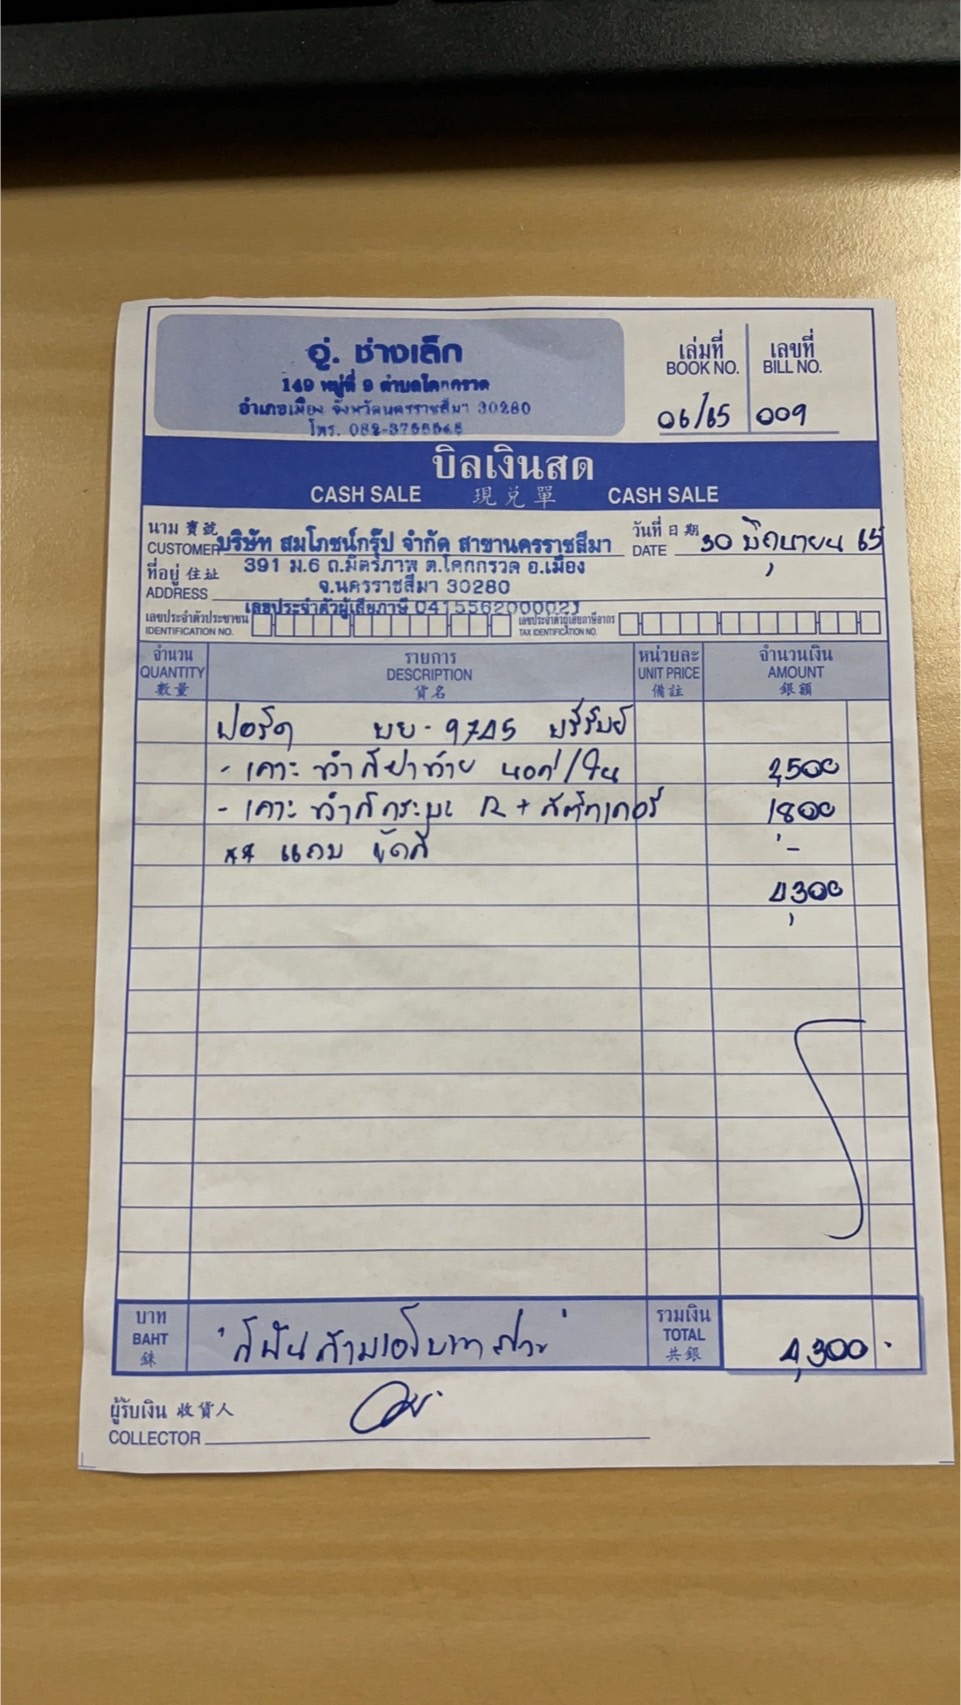 อู่. ช่างเล็ก
149 หมู่ที่ 9 ตำบลโคกกรวด
อำเภอเมือง จังหวัดนครราชสีมา 30280
โทร.
เล่มที่ เลขที่
BOOK NO. BILL NO.
06/65 009
บิลเงินสด
CASH SALE 現兌單 CASH SALE
นาม 寶號
CUSTOMER บริษัท สมโภชน์กรุ๊ป จำกัด สาขานครราชสีมา
วันที่ 日期
DATE 30 มิถุนายน 65
ที่อยู่ 住址 391 ม.6 ถ.มิตรภาพ ต.โคกกรวด อ.เมือง
ADDRESS จ.นครราชสีมา 30280
เลขประจำตัวผู้เสียภาษี
เลขประจำตัวประชาชน เลขประจำตัวผู้เสียภาษีอากร
IDENTIFICATION NO. TAX IDENTIFICATION NO.
จำนวน รายการ หน่วยละ จำนวนเงิน
QUANTITY DESCRIPTION UNIT PRICE AMOUNT
數量 貨名 備註 銀額
ฟอร์ด
- เคาะ ทำสีฝาท้าย 2,500
- เคาะ ทำสีกระบะ R + สติ๊กเกอร์ 1,800
** แถม ขัดสี -
4,300
บาท รวมเงิน
BAHT TOTAL
銖 共銀
"สี่พันสามร้อยบาทถ้วน" 4,300.-
ผู้รับเงิน 收貨人
COLLECTOR